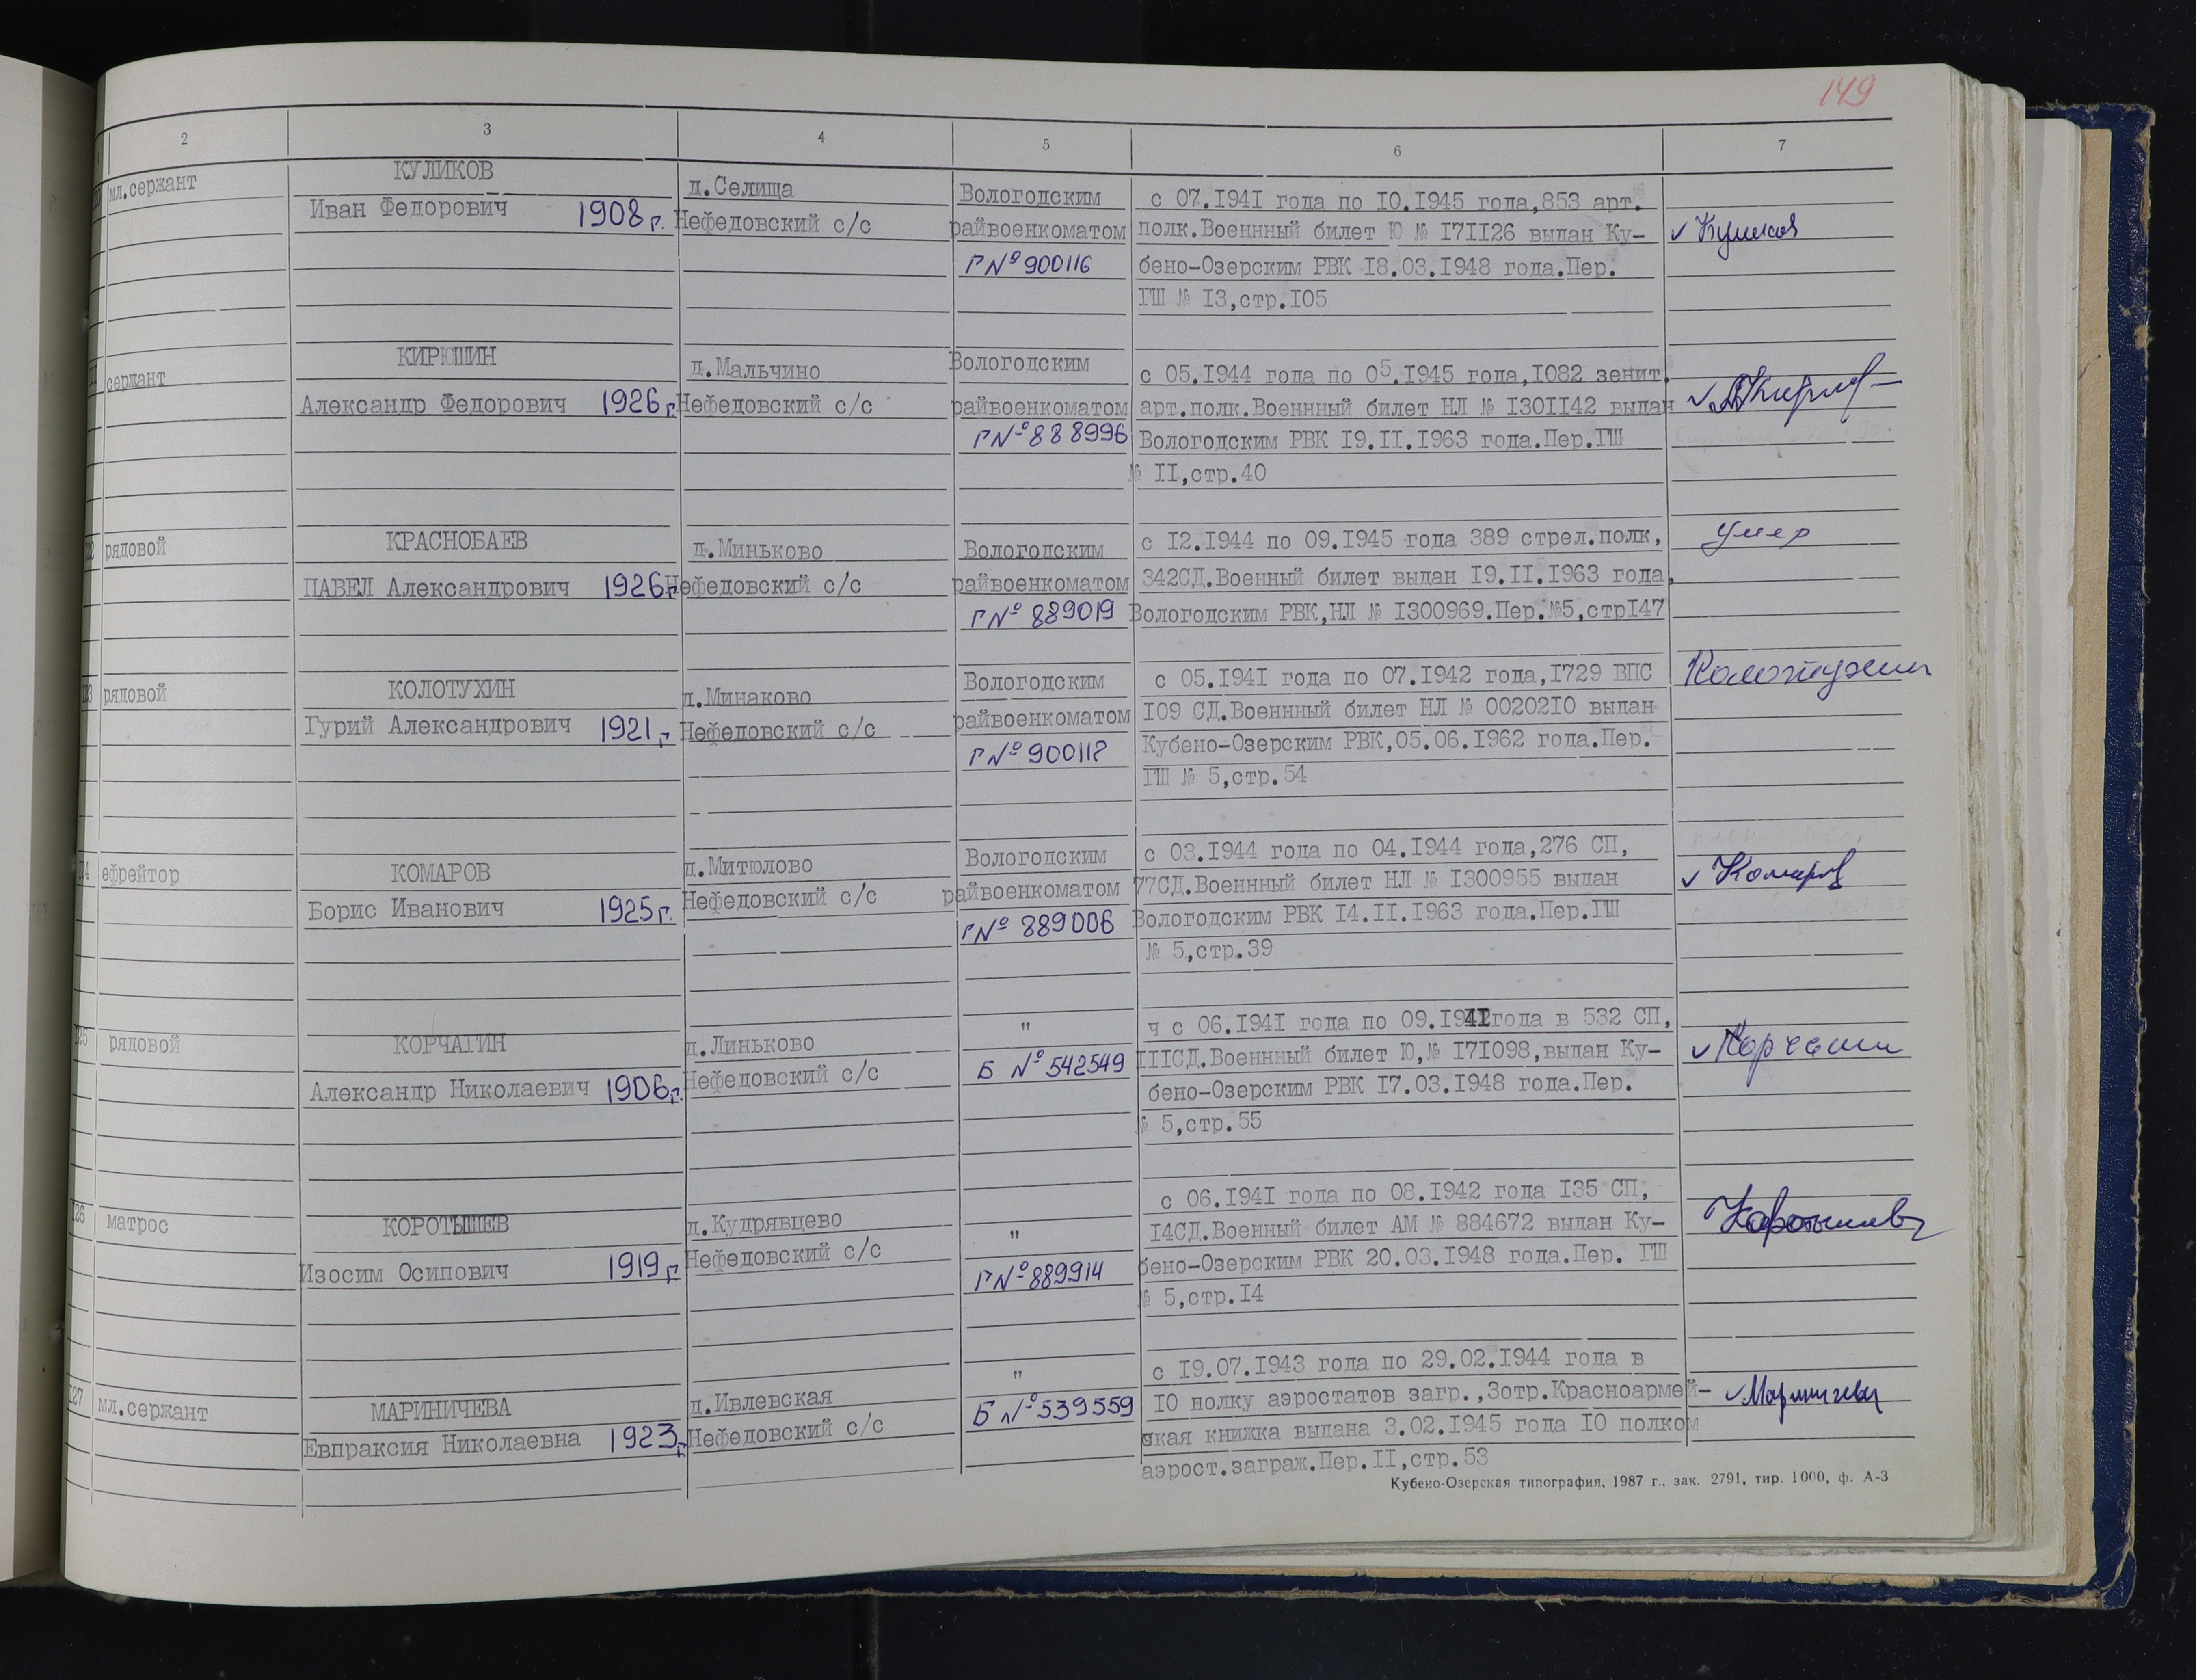 149
2 3 4 5 6 7
мл.сержант
КУЛИКОВ
Иван Федорович 1908 г.
д.Селища
Нефедовский с/с
Вологодским
райвоенкоматом
Г № 900116
с 07.I94I года по I0.I945 года,853 арт.
полк.Военнный билет Ю № I7II26 выдан Ку-
бено-Озерским РВК I8.03.I948 года.Пер.
ГШ № I3,стр.I05
✓ Куликов
сержант
КИРЮШИН
Александр Федорович 1926 г.
д.Мальчино
Нефедовский с/с
Вологодским
райвоенкоматом
Г № 888996
с 05.I944 года по 05.I945 года,I082 зенит.
арт.полк.Военнный билет НЛ № I30II42 выдан
Вологодским РВК I9.II.I963 года.Пер.ГШ
№ II,стр.40
рядовой
КРАСНОБАЕВ
ПАВЕЛ Александрович 1926 г.
д.Миньково
Нефедовский с/с
Вологодским
райвоенкоматом
Г № 889019
с I2.I944 по 09.I945 года 389 стрел.полк,
342СД.Военный билет выдан I9.II.I963 года,
Вологодским РВК,НЛ № I300969.Пер.№5,стрI47
умер
рядовой
КОЛОТУХИН
Гурий Александрович 1921 г.
д.Минаково
Нефедовский с/с
Вологодским
райвоенкоматом
Г № 900112
с 05.I94I года по 07.I942 года,I729 ВПС
I09 СД.Военнный билет НЛ № 00202I0 выдан
Кубено-Озерским РВК,05.06.I962 года.Пер.
ГШ № 5,стр.54
Колотухин
ефрейтор
КОМАРОВ
Борис Иванович 1925 г.
д.Митюлово
Нефедовский с/с
Вологодским
райвоенкоматом
Г № 889006
с 03.I944 года по 04.I944 года,276 СП,
77СД.Военнный билет НЛ № I300955 выдан
Вологодским РВК I4.II.I963 года.Пер.ГШ
№ 5,стр.39
✓ Комаров
рядовой
КОРЧАГИН
Александр Николаевич 1906 г.
д.Линьково
Нефедовский с/с
"
Б № 542549
ч с 06.I94I года по 09.I94 года в 532 СП,
IIIСД.Военнный билет Ю,№ I7I098,выдан Ку-
бено-Озерским РВК I7.03.I948 года.Пер.
№ 5,стр.55
✓ Корчагин
I26
матрос
КОРОТЫШЕВ
Изосим Осипович 1919 г.
д.Кудрявцево
Нефедовский с/с
"
Г № 889914
с 06.I94I года по 08.I942 года I35 СП,
I4СД.Военный билет АМ № 884672 выдан Ку-
бено-Озерским РВК 20.03.I948 года.Пер. ГШ
№ 5,стр.I4
Коротышев
I27
мл.сержант
МАРИНИЧЕВА
Евпраксия Николаевна 1923 г.
д.Ивлевская
Нефедовский с/с
"
Б № 539559
с I9.07.I943 года по 29.02.I944 года в
I0 полку аэростатов загр.,3отр.Красноармей-
ская книжка выдана 3.02.I945 года I0 полком
аэрост.заграж.Пер.II,стр.53
✓ Мариничева
Кубено-Озерская типография, 1987 г., зак. 2791, тир. 1000, ф. А-3